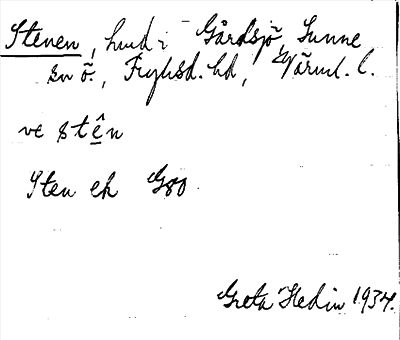 Stenen, hmd i Gårdsjö, Sunne
sn ö., Fryksd. hd, Värml. l.
ve stê̱n
Sten ek G80
Greta Hedin 1934.